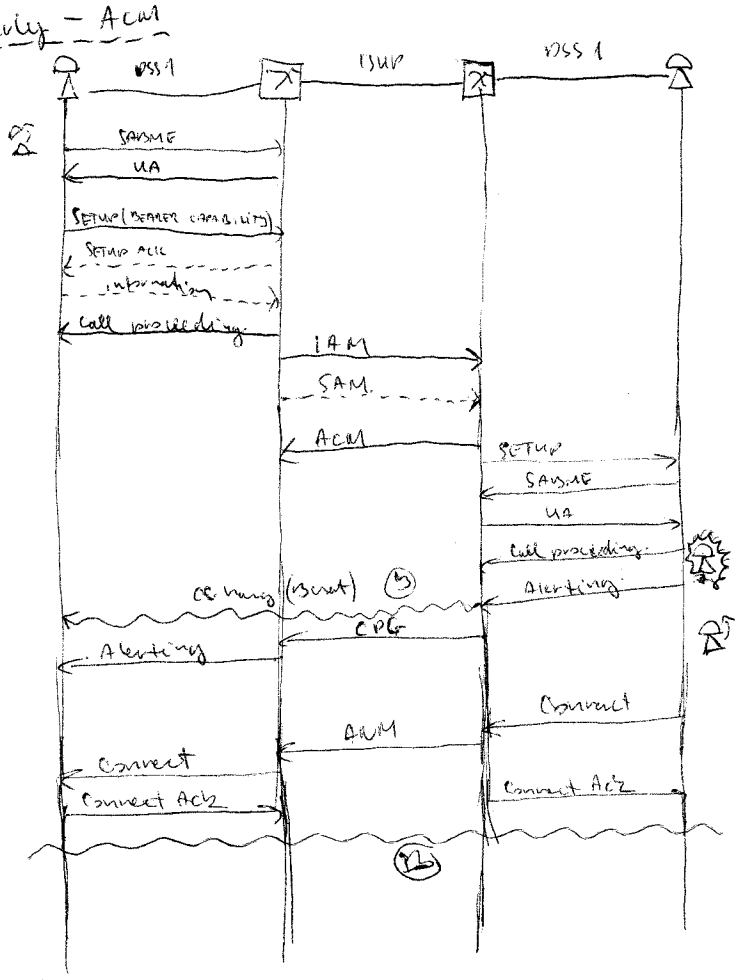 Early - ACM
DSS1 ISUP DSS1
SABME
UA
SETUP (BEARER CAPABILITY)
SETUP ACK
information
Call proceeding.
IAM
SAM
ACM
SETUP
SABME
UA
Call proceeding.
Alerting
CPG
Alerting
Connect
ANM
Connect
Connect Ack
Connect Ack